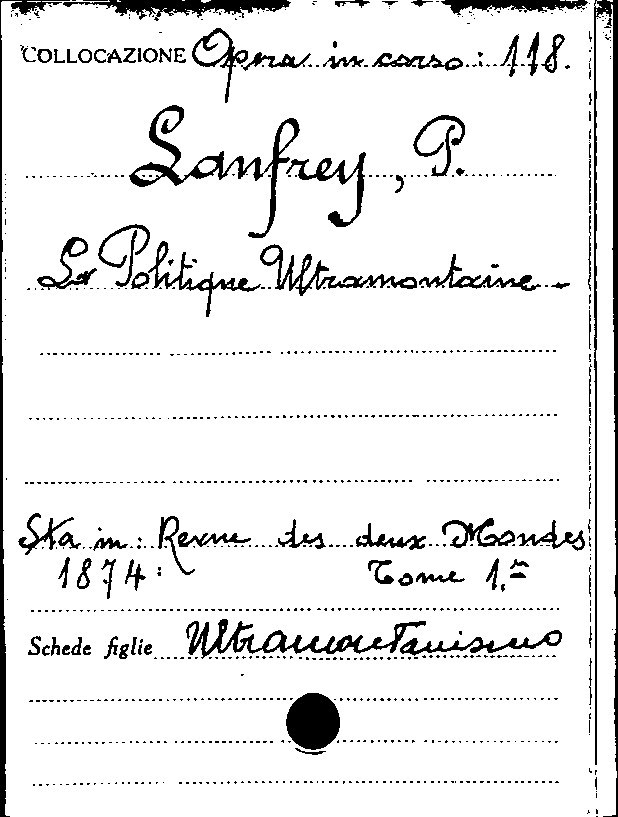 COLLOCAZIONE Opera in corso: 118.
Lanfrey, P.
La Politique Ultramontaine
Sta in: Revue des deux Mondes
1874: Tome 1.
Schede figlie Ultramontanismo